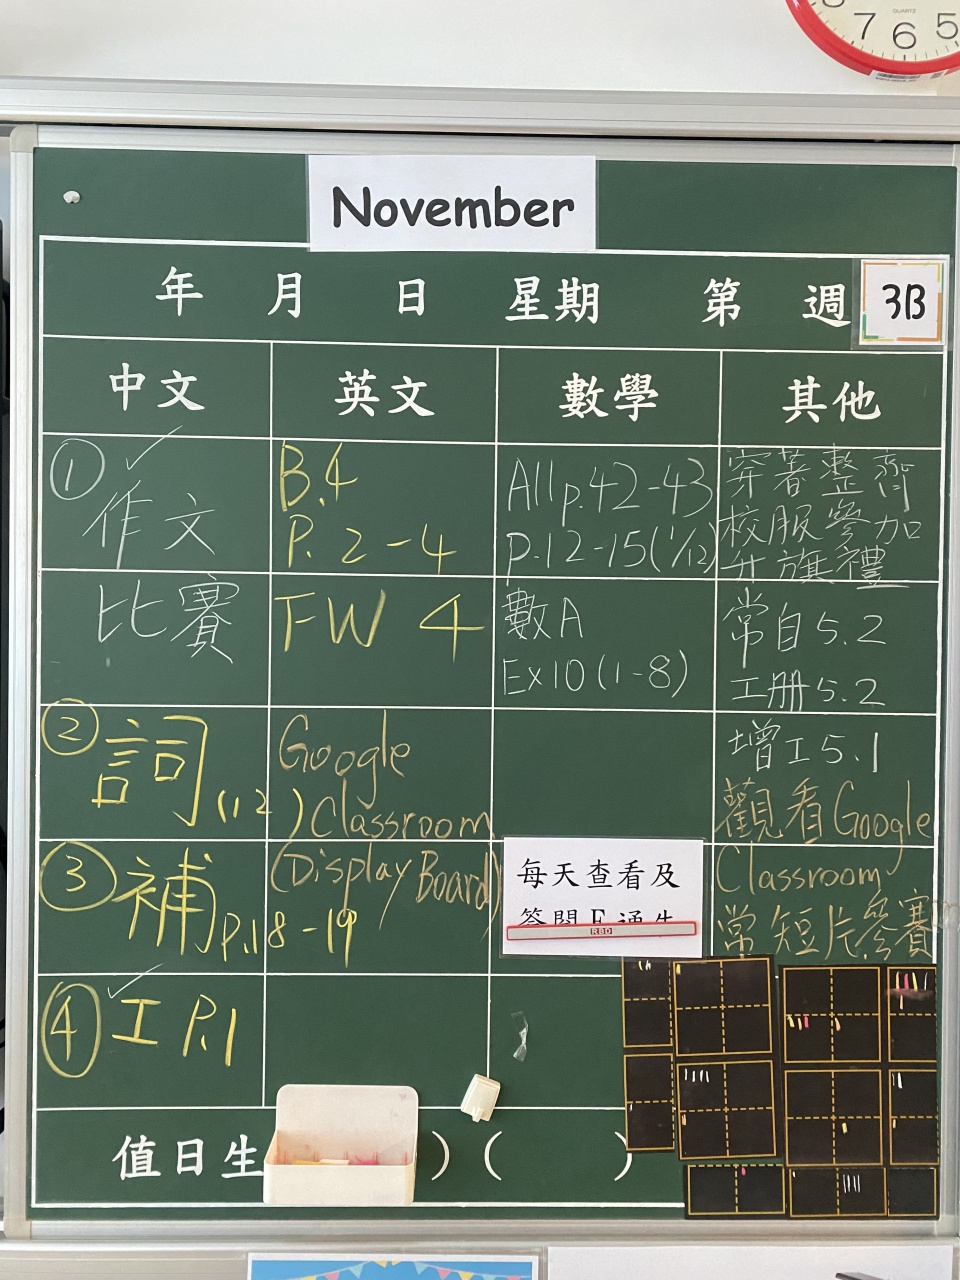 QUARTZ
8 7 6 5
November
年 月 日 星期 第 週 3B
中文 英文 數學 其他
① ✓
作文
B.4
P.2-4
All p.42-43
p.12-15(1/12)
穿著整齊
校服參加
升旗禮
比賽
FW 4
數A
Ex10(1-8)
常自5.2
工冊5.2
② 詞(12)
Google
Classroom
(Display Board)
增工5.1
觀看Google
Classroom
常短片參賽
③ 補P.18-19
每天查看及
RBD
④ ✓ 工 P.1
值日生 )( )